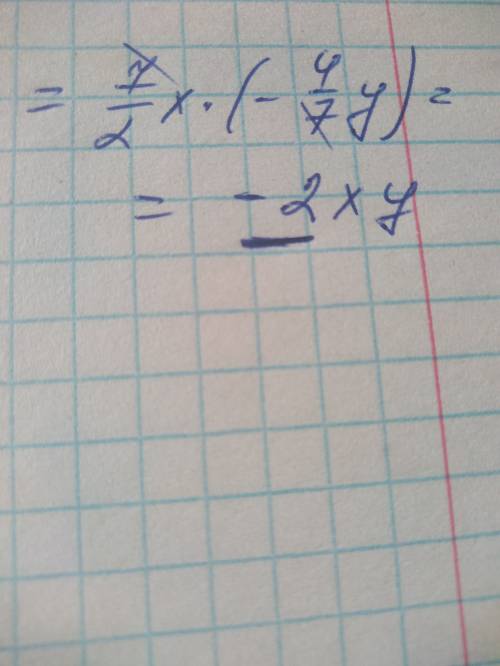 = 7/2 x · (- 4/7 y) =
= - 2 x y